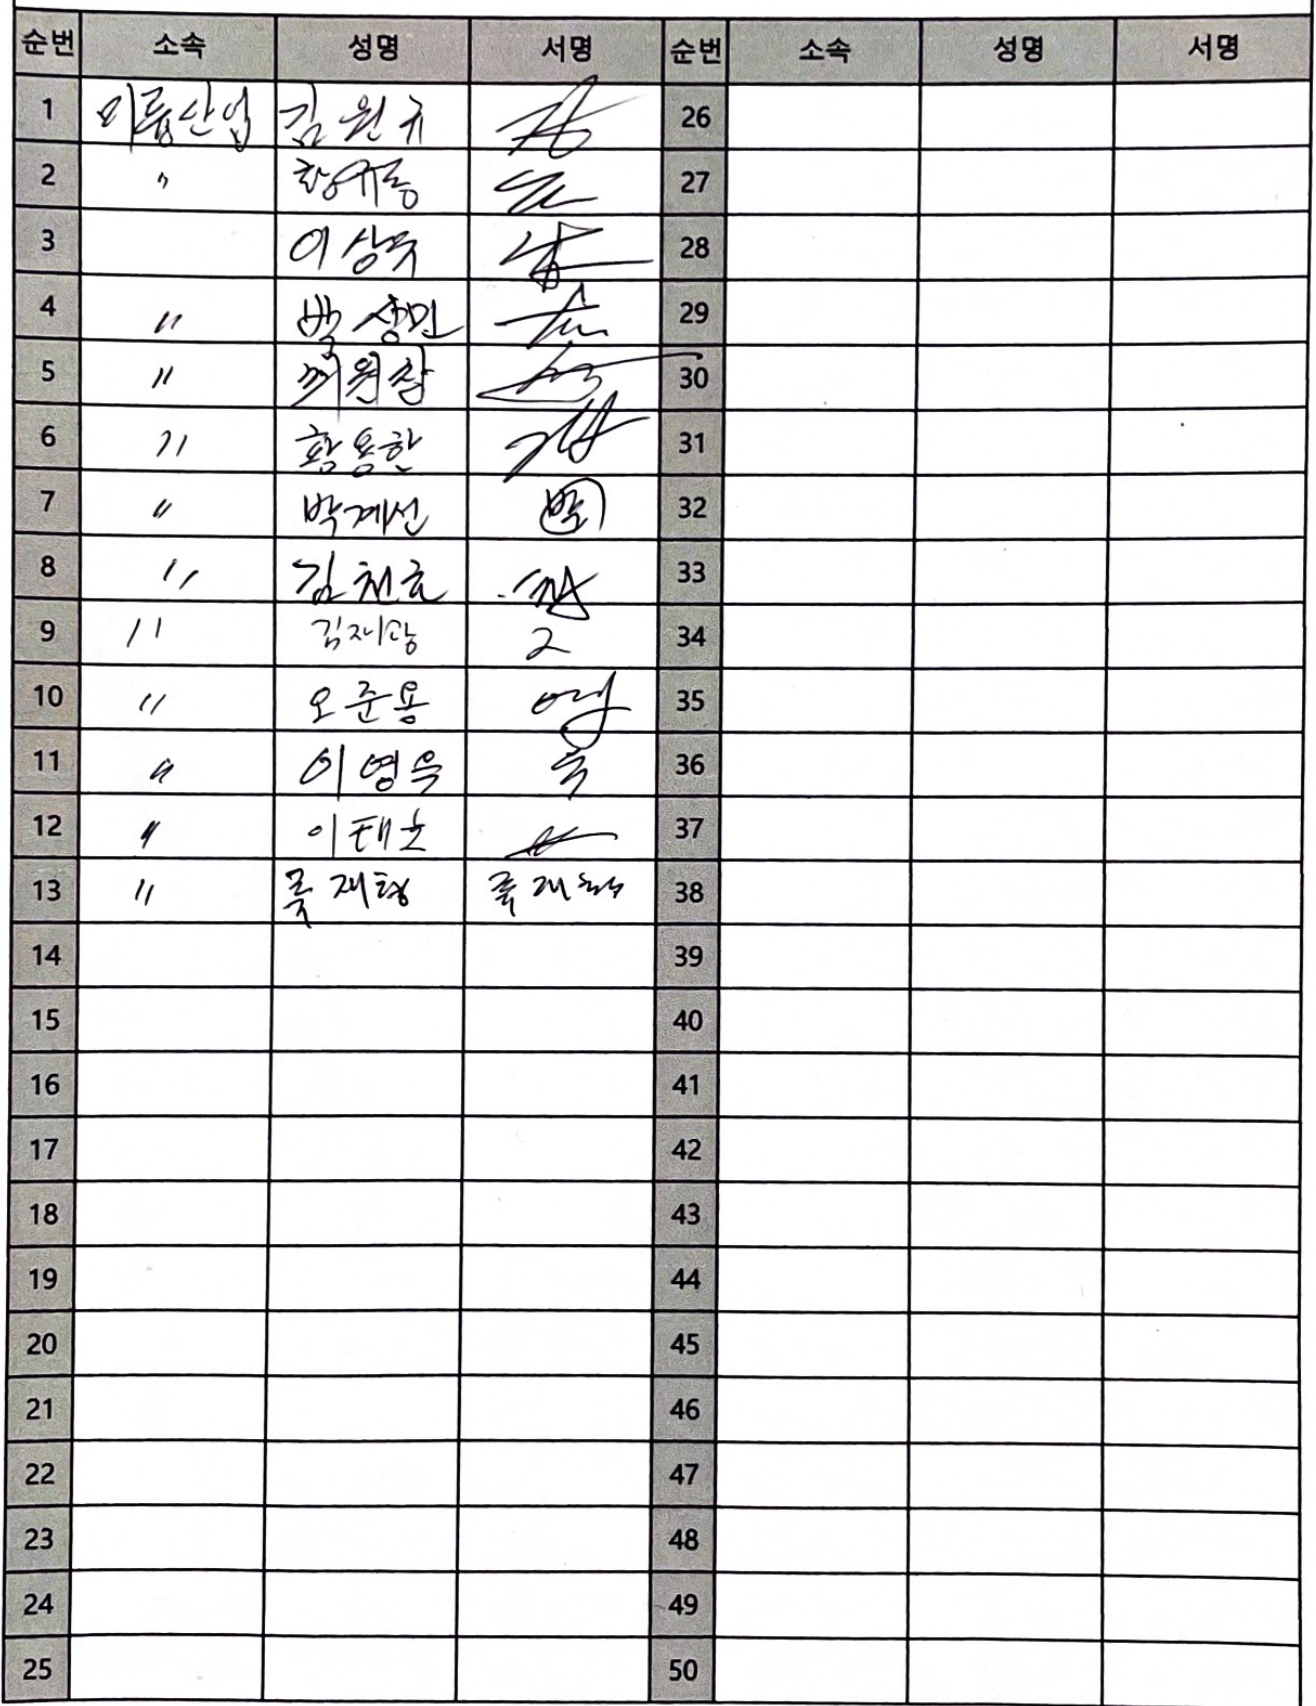 순번 소속 성명 서명 순번 소속 성명 서명
1 미륭산업 김원규 26
2 〃 27
3 이상욱 28
4 〃 박상민 29
5 〃 30
6 〃 황용한 31
7 〃 박계선 박 32
8 〃 김천호 33
9 〃 김재광 34
10 〃 오준용 35
11 〃 이영욱 욱 36
12 〃 이태호 37
13 〃 재형 38
14 39
15 40
16 41
17 42
18 43
19 44
20 45
21 46
22 47
23 48
24 49
25 50